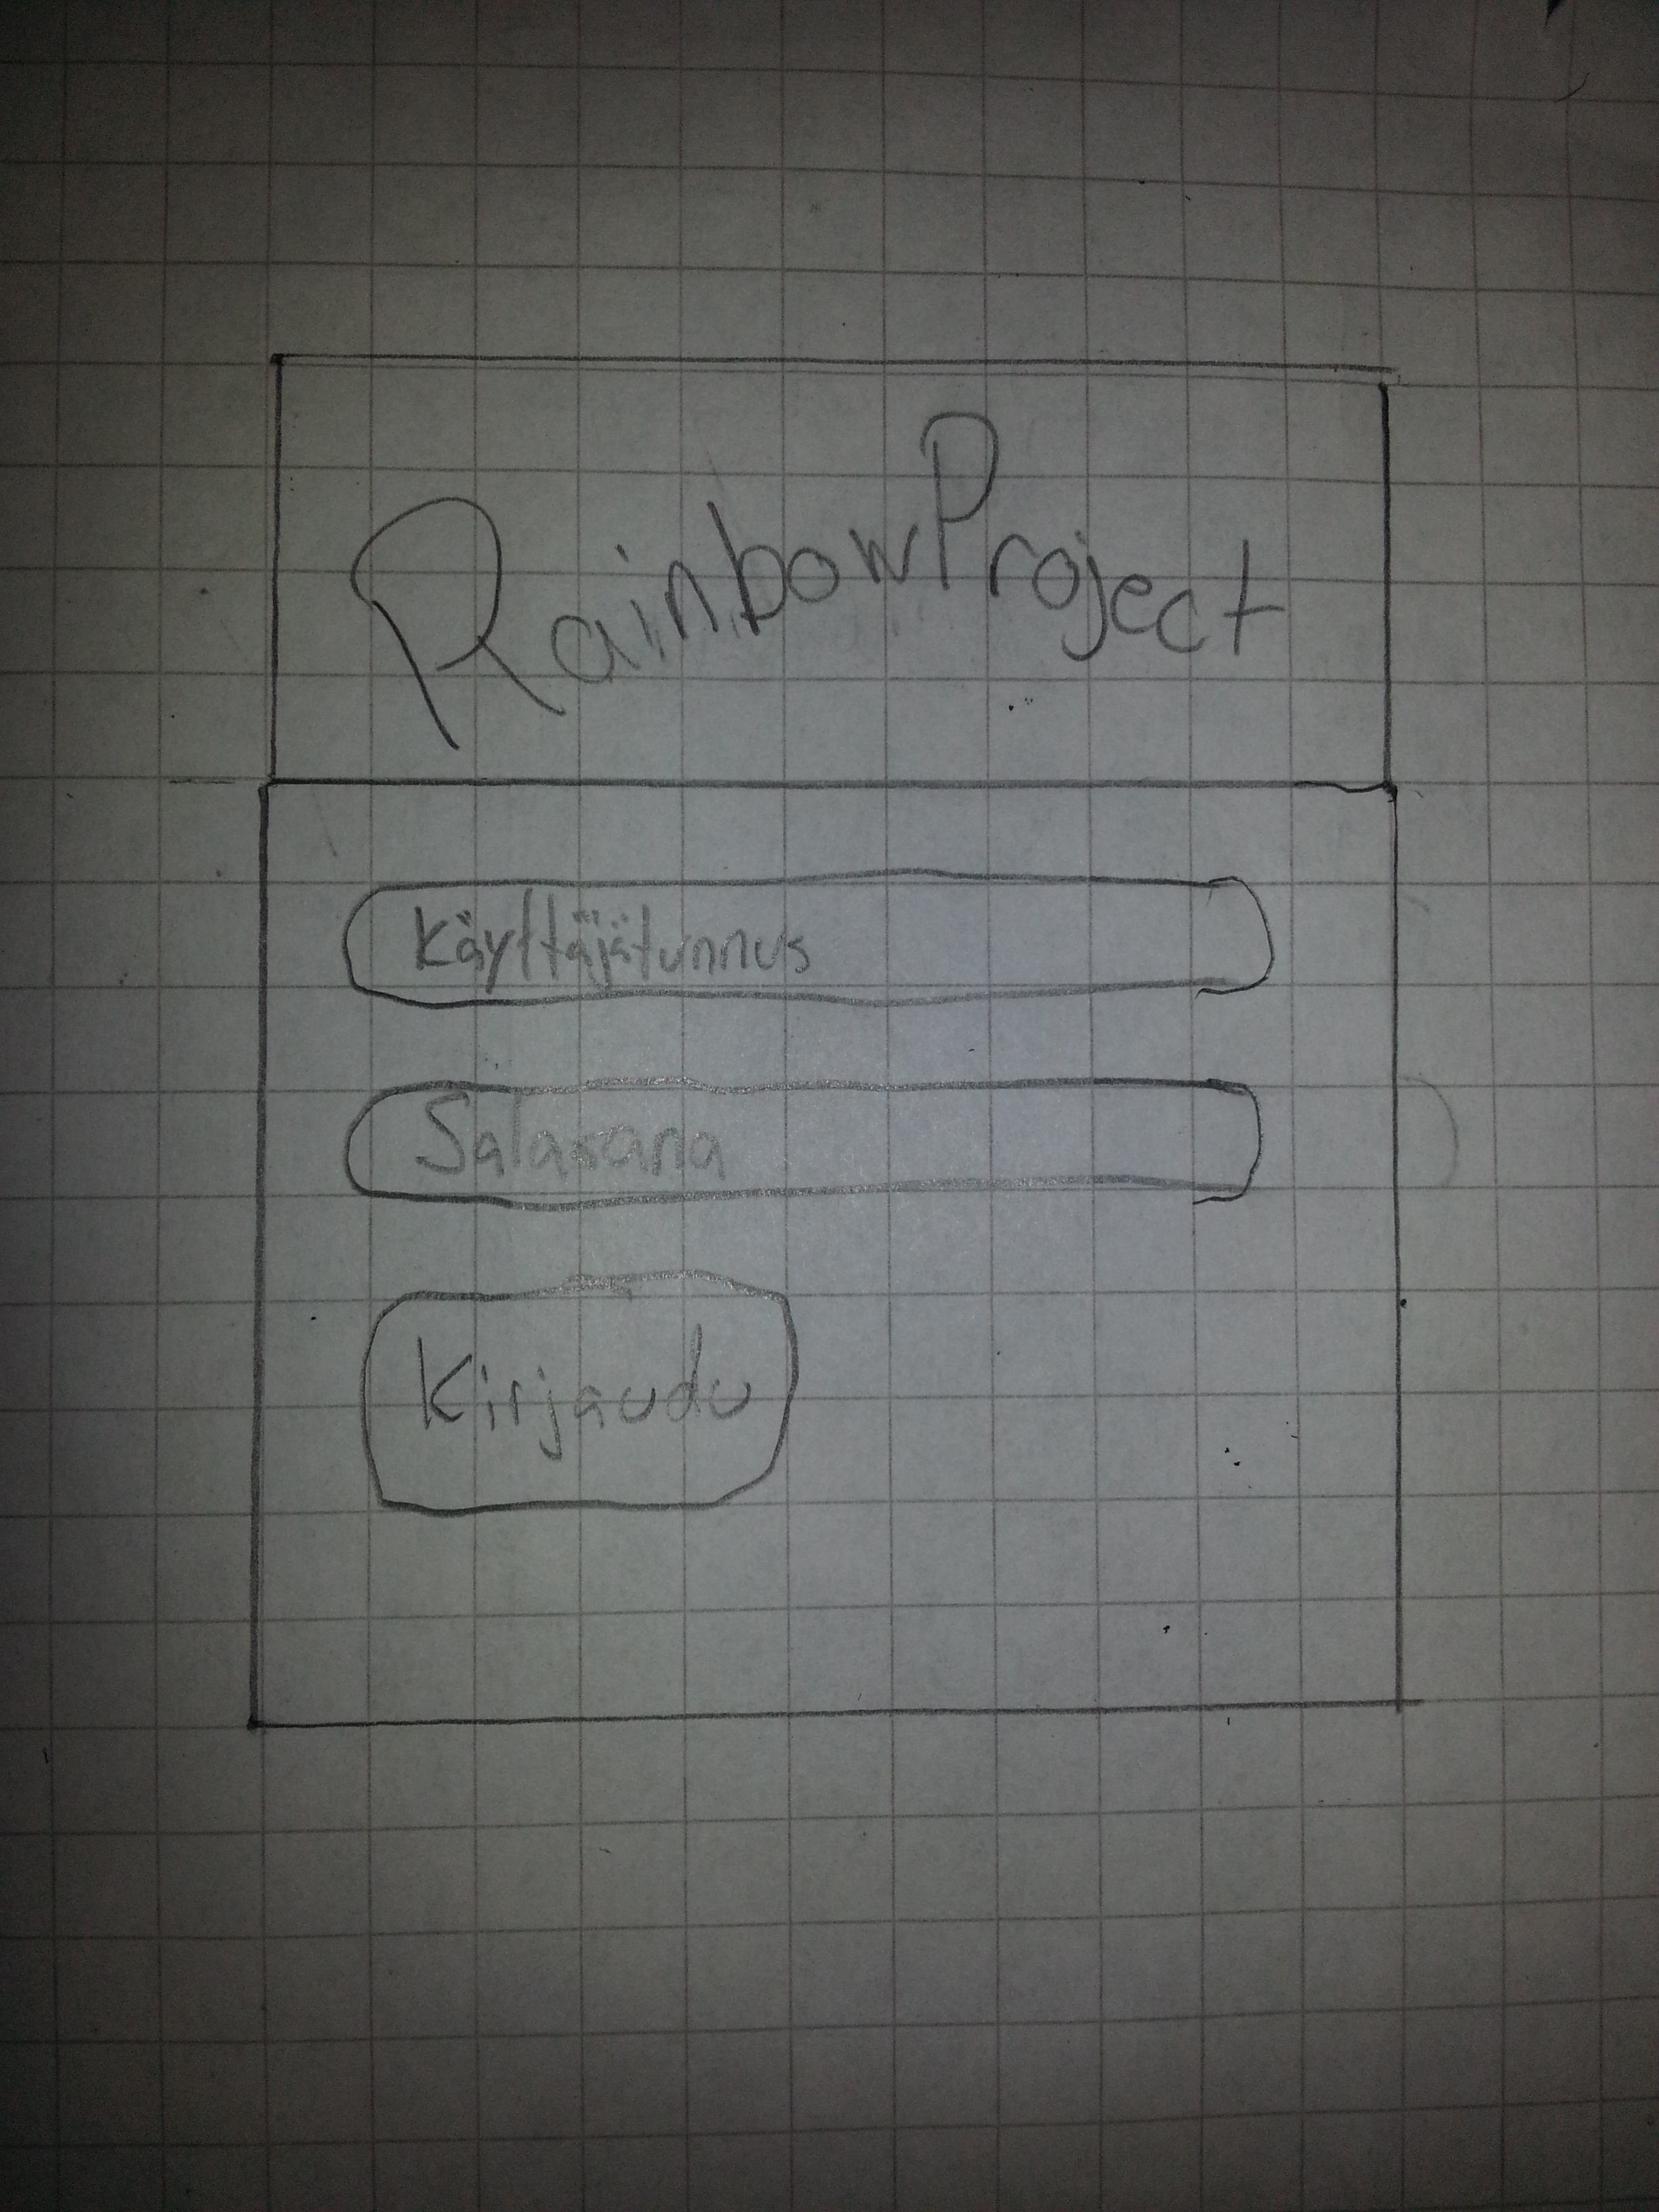 RainbowProject
Käyttäjätunnus
Salasana
Kirjaudu